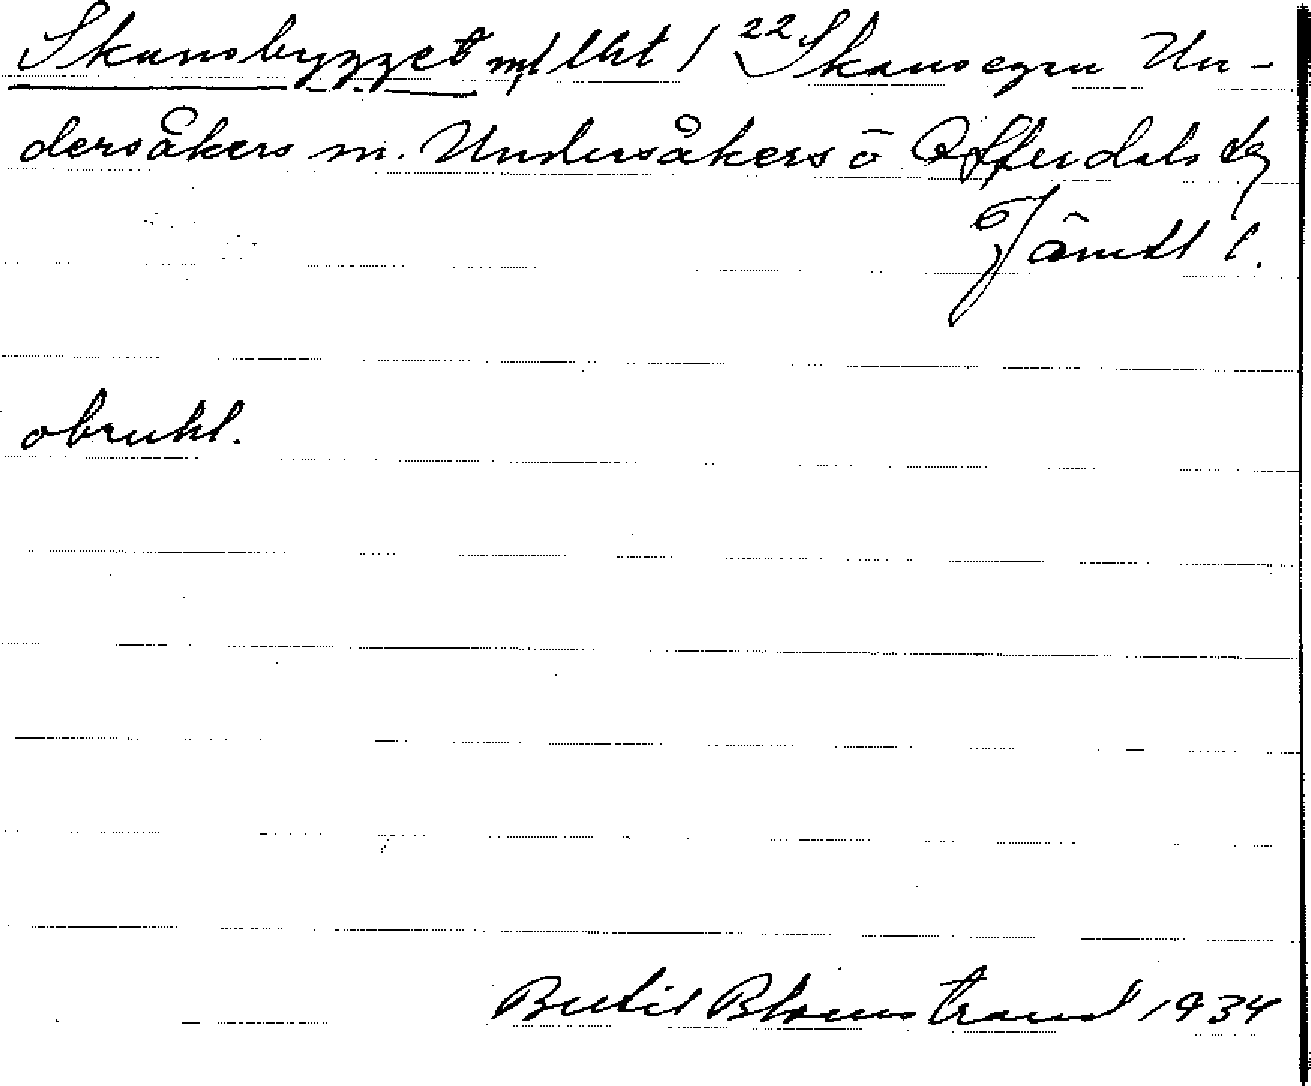 Skansbygget m/ lht 1 22 Skansegen Un-
dersåkers sn. Undersåkers o Offerdals tg
Jämtl l.
obrukl.
Bertil Blomstrand 1934